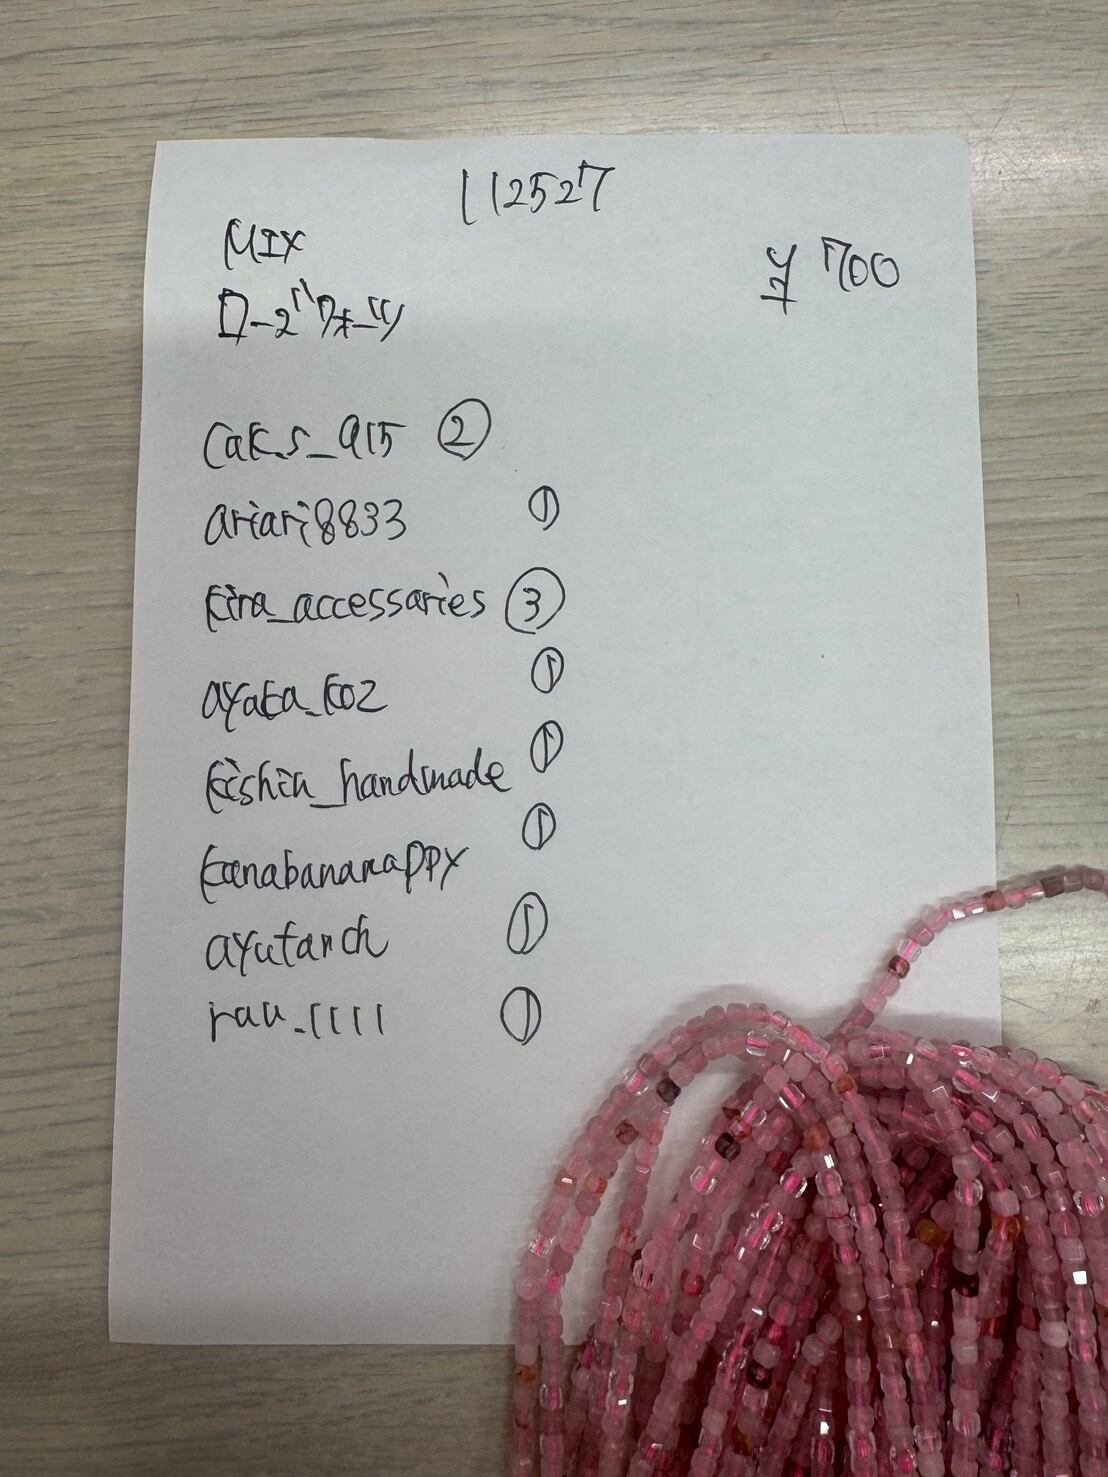 112527
MIX
¥700
ローズクォーツ
cak.s_915 ②
ariari8833 ①
kira_accessaries ③
ayaka_k02 ①
kishin_handmade ①
kanabananappy ①
ayutanch ①
rau.1111 ①